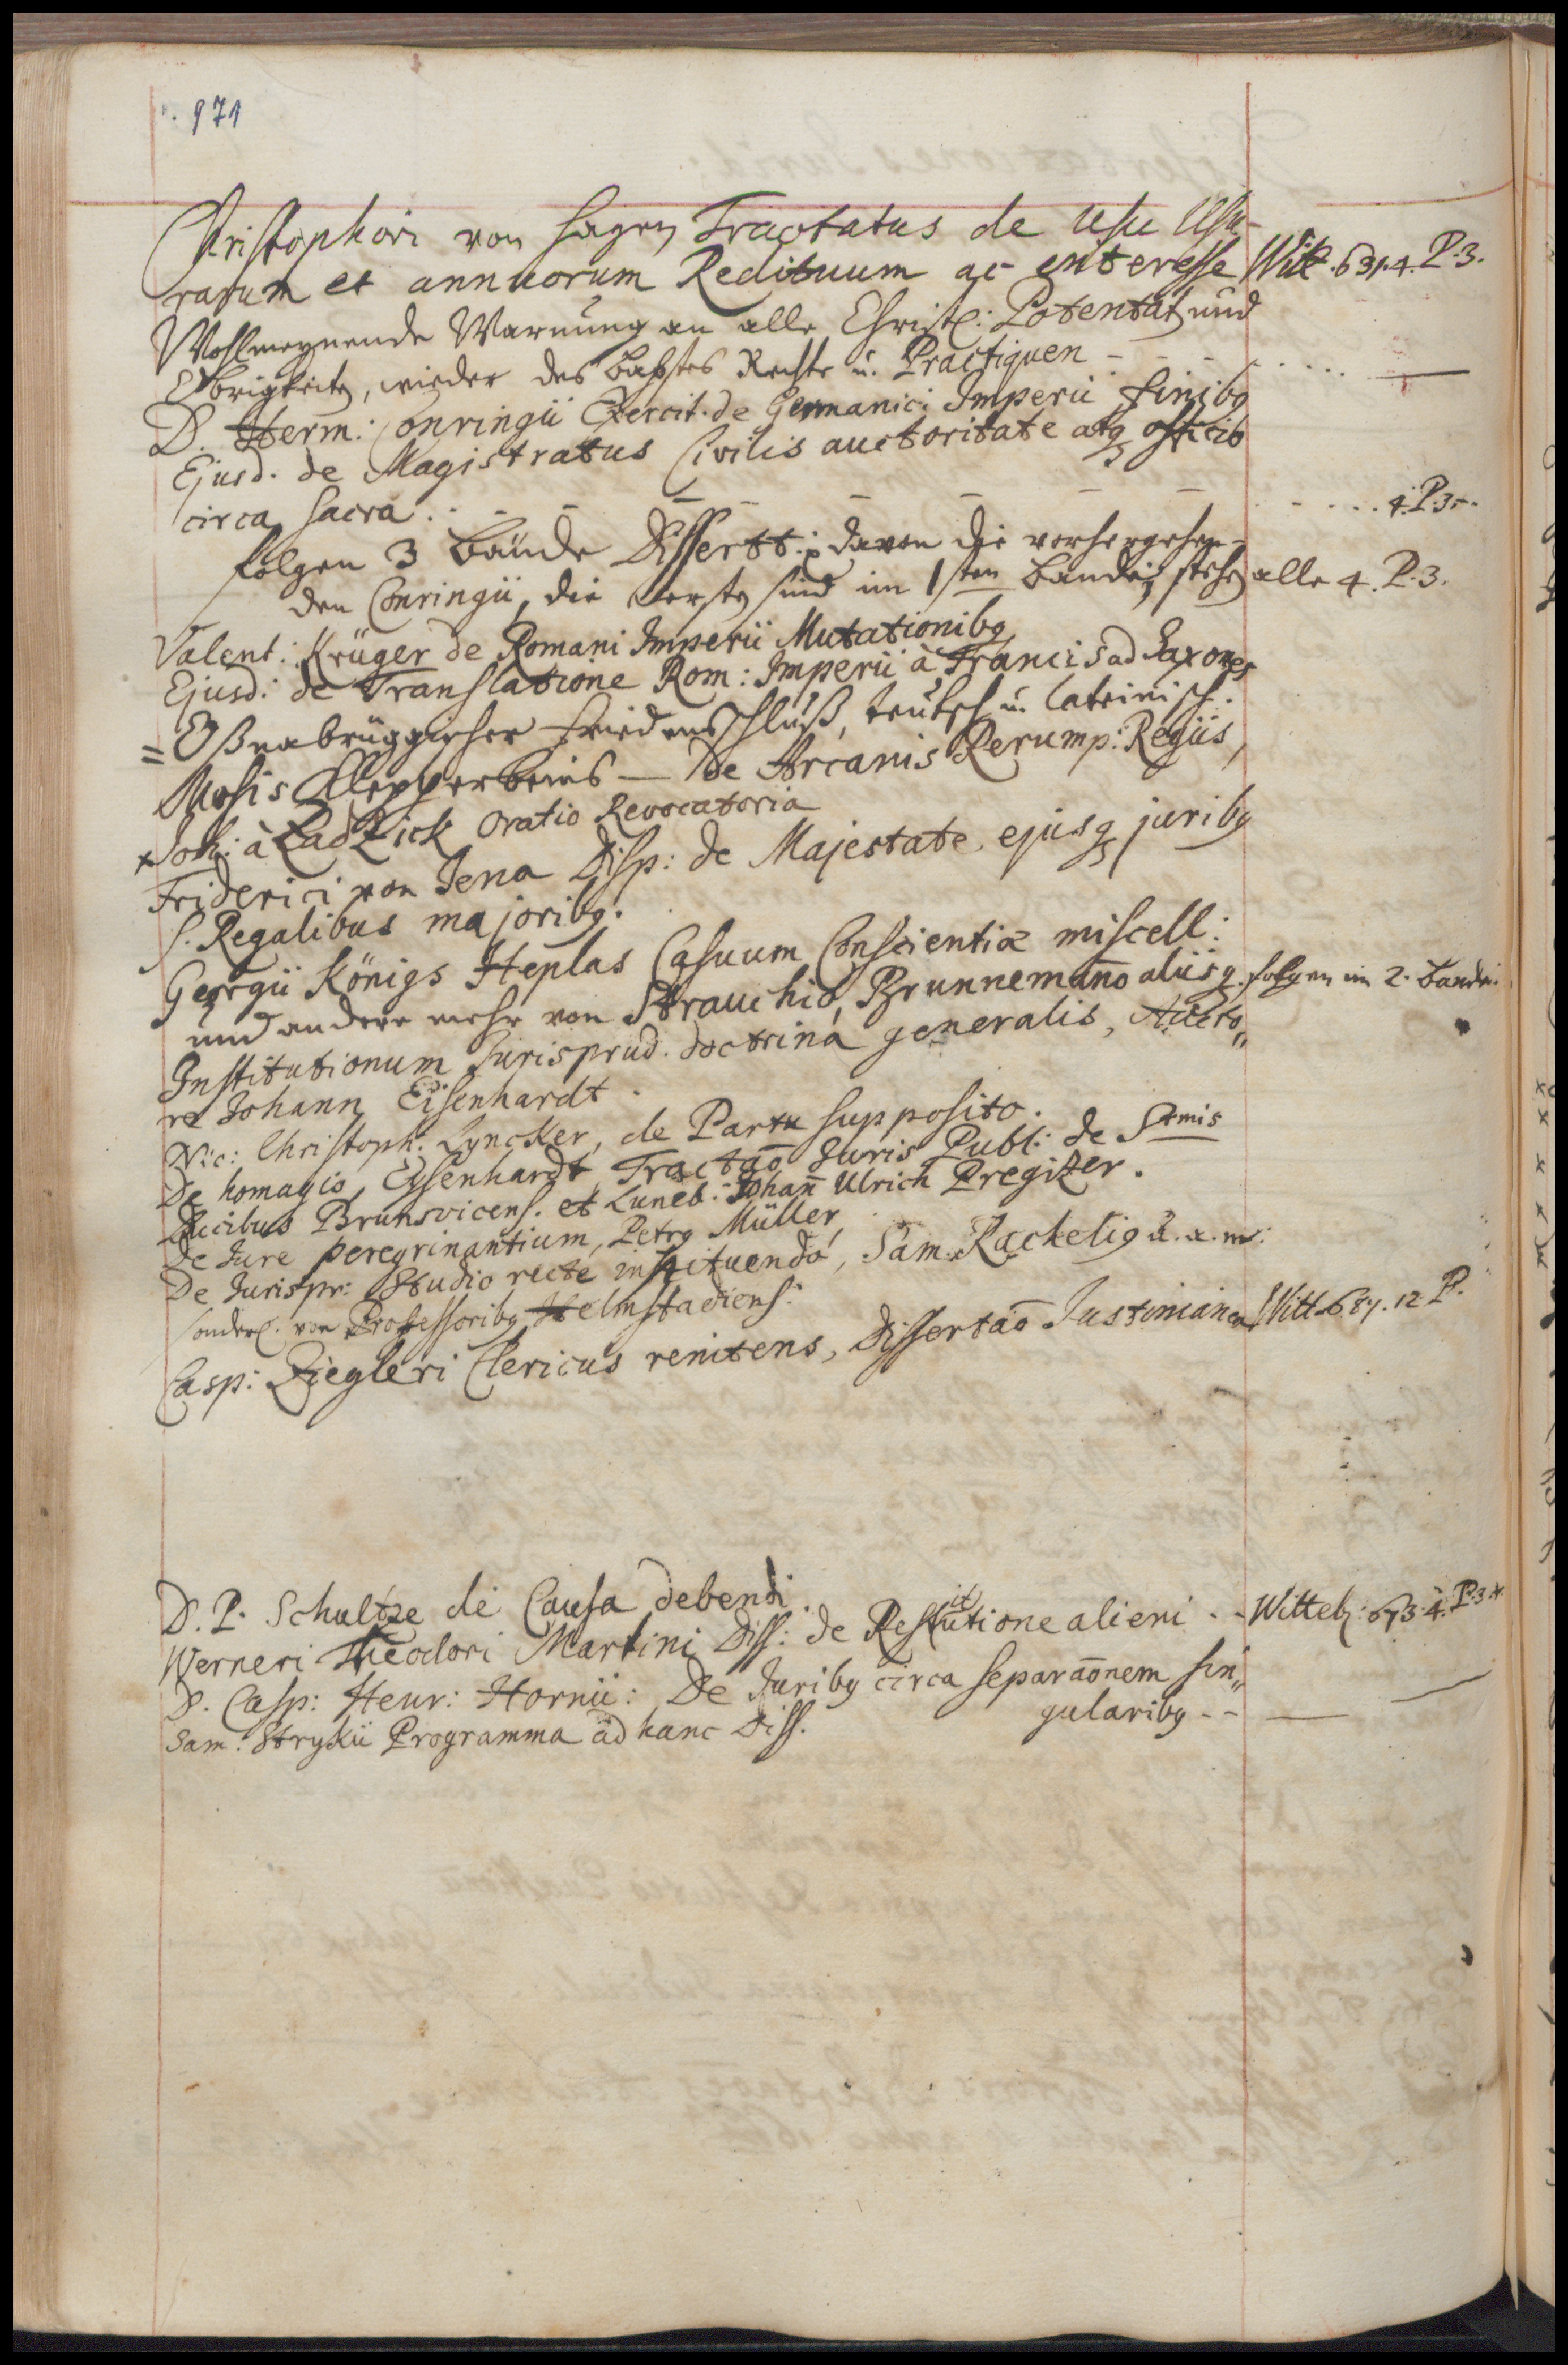 971
Christophori von Hagen Tractatus de Usu Usu-
rarum et annuorum Redituum ac enteresse Witt. 631. 4. P. 3.
Wohlmeynende Warnung an alle Christl: Potentat und
Obrigkeiten, wieder des Babstes Rechte u. Practiquen - - - . . . . —
D. Herm: Conringii Exercit. de Germanici Imperii finibq
Ejusd. de Magistratus Civilis auctoritate atq officio
circa sacra . - - - - - - - - . . . 4. P. 3.
folgen 3 Bände Dissertt: davon die vorhergehen-
den Conringii, die ersten sind im 1sten Bande, stehen alle 4. P. 3.
Valent: Krüger de Romani Imperii Mutationibq
Ejusd: de Translatione Rom: Imperii à Francis ad Saxones
= Oßnabrüggischer Friedensschluß, teutsch u. lateinisch.
Mosis Klepperbeins — De Arcanis Rerump: Regiis,
+ Joh: à Ladzick Oratio Revocatoria
Friderici von Jena Disp: de Majestate ejusq juribq
s. Regalibus majoribq.
Georgii Königs Heplas Casuum Conscientiæ miscell:
und andere mehr von Strauchio, Brunnemano aliisq. folgen im 2. Bande.
Institutionum Jurisprud. doctrina generalis, Aucto„
re Johann Eisenhardt.
Nic: Christoph: Lyncker, de Partu supposito.
De homagio, Eysenhardt, Tractao Juris Publ: de Smis
Ducibus Brunsvicens. et Luneb: Johañ Ulrich Pregitzer.
De Jure peregrinantium, Petrq Müller
De Jurispr: Studio recte instituendo, Sam: Rachelig u. a. m:
sonderl. von Professoribq Helmstadiens:
Casp: Ziegleri Clericus renitens, Dissertaō Justinianea Witt. 687. 12. P.
D. P. Schultze de Causa debendi.
Werneri Theodori Martini Diss: de Restitutione alieni - - Witteb: 673. 4. P. 3.
D. Casp: Henr: Hornii: De Juribq circa separaōnem sin„
gularibq - - —
Sam: Strykii Programma ad hanc Diss.